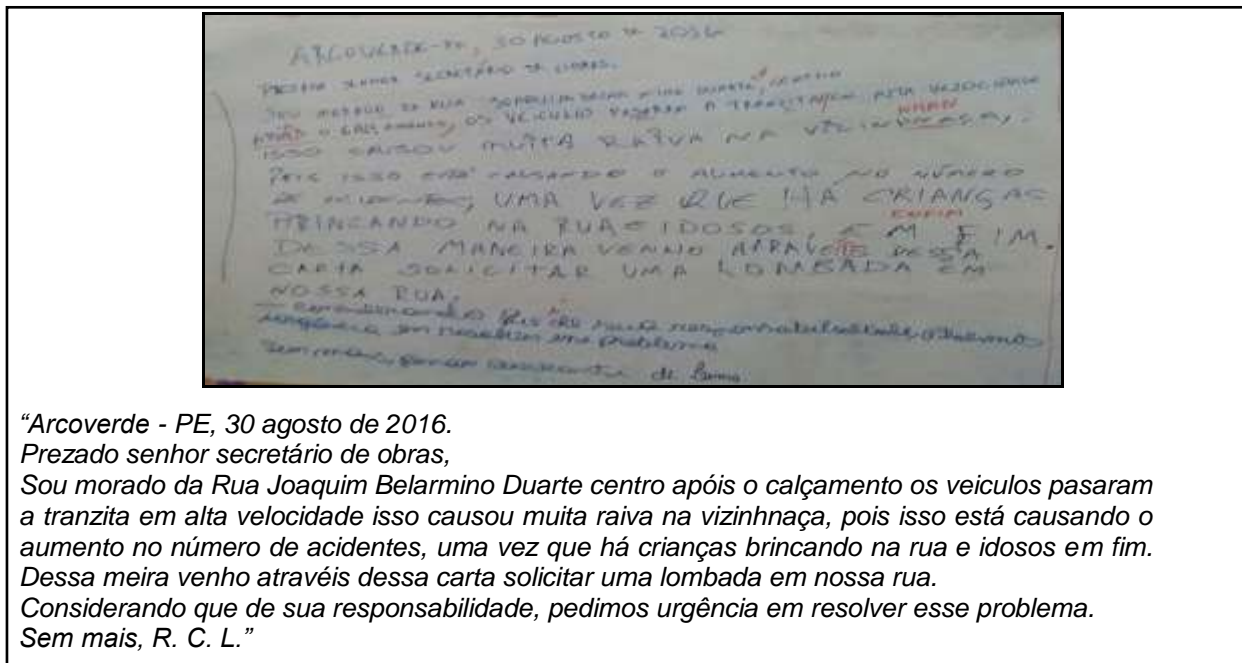 ARCOVERDE-PE, 30 AGOSTO DE 2016
PREZADO SENHOR SECRETÁRIO DE OBRAS.
SOU MORADO DA RUA DUARTE, CENTRO
O CALÇAMENTO, OS VEICULOS PASARAM A EM ALTA VELOCIDADE
NHAN
ISSO CAUSOU MUITA RAIVA NA
POIS ISSO ESTÁ CAUSANDO O AUMENTO NO NÚMERO
DE ACIDENTES, UMA VEZ QUE HÁ CRIANÇAS
BRINCANDO NA RUA E IDOSOS, EM FIM.
ENFIM
DESSA MANEIRA VENHO DESSA
CARTA SOLICITAR UMA LOMBADA EM
NOSSA RUA.
Considerando que de sua responsabilidade
urgência em resolver esse problema
Sem mais,
“Arcoverde - PE, 30 agosto de 2016.
Prezado senhor secretário de obras,
Sou morado da Rua Joaquim Belarmino Duarte centro apóis o calçamento os veiculos pasaram
a tranzita em alta velocidade isso causou muita raiva na vizinhnaça, pois isso está causando o
aumento no número de acidentes, uma vez que há crianças brincando na rua e idosos em fim.
Dessa meira venho atravéis dessa carta solicitar uma lombada em nossa rua.
Considerando que de sua responsabilidade, pedimos urgência em resolver esse problema.
Sem mais, R. C. L.”